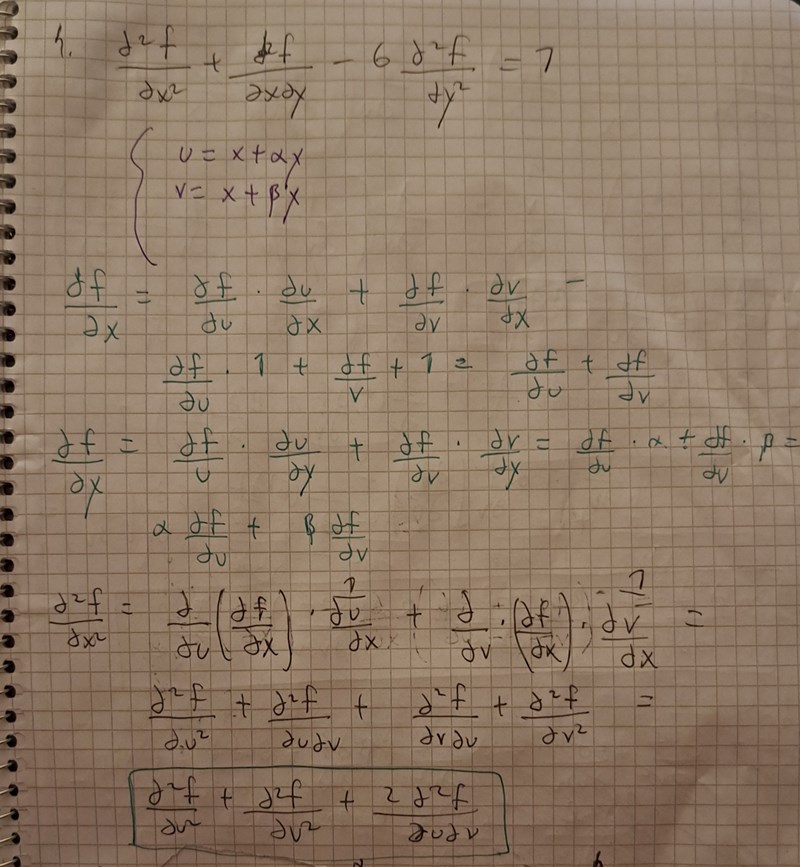 4. ∂²f/∂x² + ∂²f/∂x∂y − 6 ∂²f/∂y² = 1
{ u = x + αy
v = x + βy
∂f/∂x = ∂f/∂u · ∂u/∂x + ∂f/∂v · ∂v/∂x =
∂f/∂u · 1 + ∂f/v + 1 = ∂f/∂u + ∂f/∂v
∂f/∂y = ∂f/u · ∂u/∂y + ∂f/∂v · ∂v/∂y = ∂f/∂u · α + ∂f/∂v · β =
α ∂f/∂u + β ∂f/∂v
1 1
∂²f/∂x² = ∂/∂u (∂f/∂x) · ∂u/∂x + ∂/∂v · (∂f/∂x) · ∂v/∂x =
∂²f/∂u² + ∂²f/∂u∂v + ∂²f/∂v∂u + ∂²f/∂v² =
∂²f/∂u² + ∂²f/∂v² + 2 ∂²f/∂u∂v